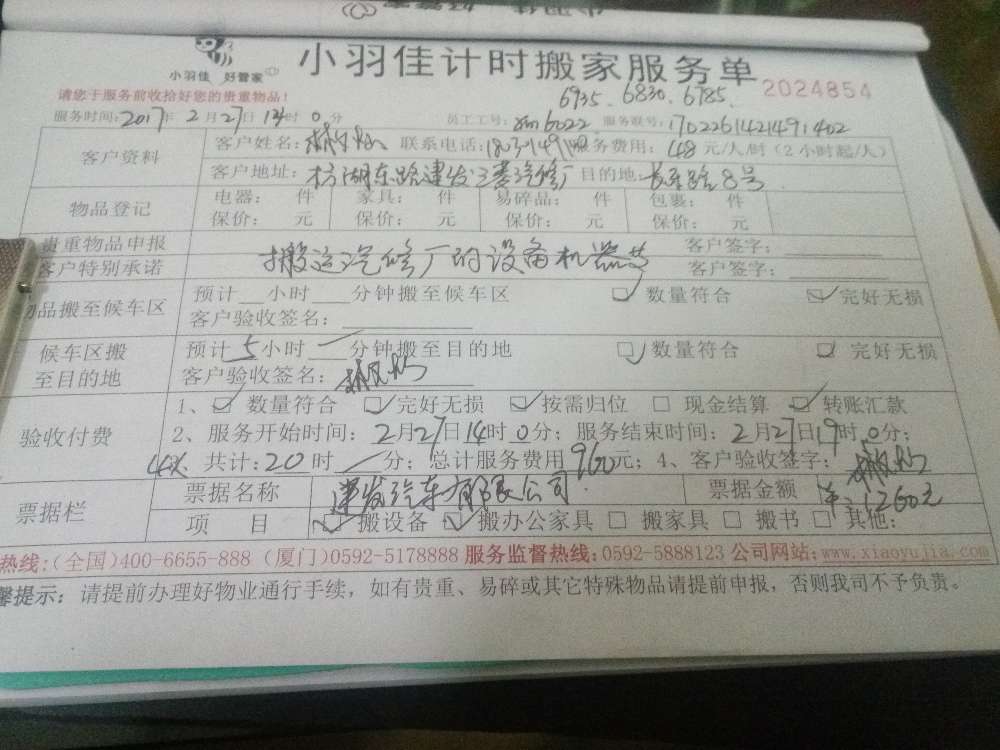 小羽佳 好管家
小羽佳计时搬家服务单
2024854
请您于服务前收拾好您的贵重物品！
6935. 6830. 6785.
服务时间：2017年2月27日 时0分 员工工号： 6022 服务联号：1702261421491402
客户资料
客户姓名： 联系电话： 服务费用：48元/人/时（2小时起/人）
客户地址：枋湖东路建发 汽修厂 目的地：长 路8号
物品登记
电器： 件 家具： 件 易碎品： 件 包裹： 件
保价： 元 保价： 元 保价： 元 保价： 元
贵重物品申报 客户签字：
客户特别承诺 搬运汽修厂的设备机器等 客户签字：
品搬至候车区
预计__小时__分钟搬至候车区 ☑ 数量符合 ☑ 完好无损
客户验收签名：
候车区搬
至目的地
预计5小时 分钟搬至目的地 ☑ 数量符合 ☑ 完好无损
客户验收签名：
验收付费
1、☑ 数量符合 ☑ 完好无损 ☑ 按需归位 □ 现金结算 ☑ 转账汇款
2、服务开始时间：2月27日14时0分；服务结束时间：2月27日19时0分；
共计：20时 分；总计服务费用960元；4、客户验收签字：
票据栏
票据名称 建发汽车有限公司 票据金额 ¥：1260元
项 目 ☑ 搬设备 ☑ 搬办公家具 □ 搬家具 □ 搬书 □ 其他：
热线：(全国)400-6655-888 (厦门)0592-5178888 服务监督热线：0592-5888123 公司网站：www.xiaoyujia.com
馨提示：请提前办理好物业通行手续，如有贵重、易碎或其它特殊物品请提前申报，否则我司不予负责。